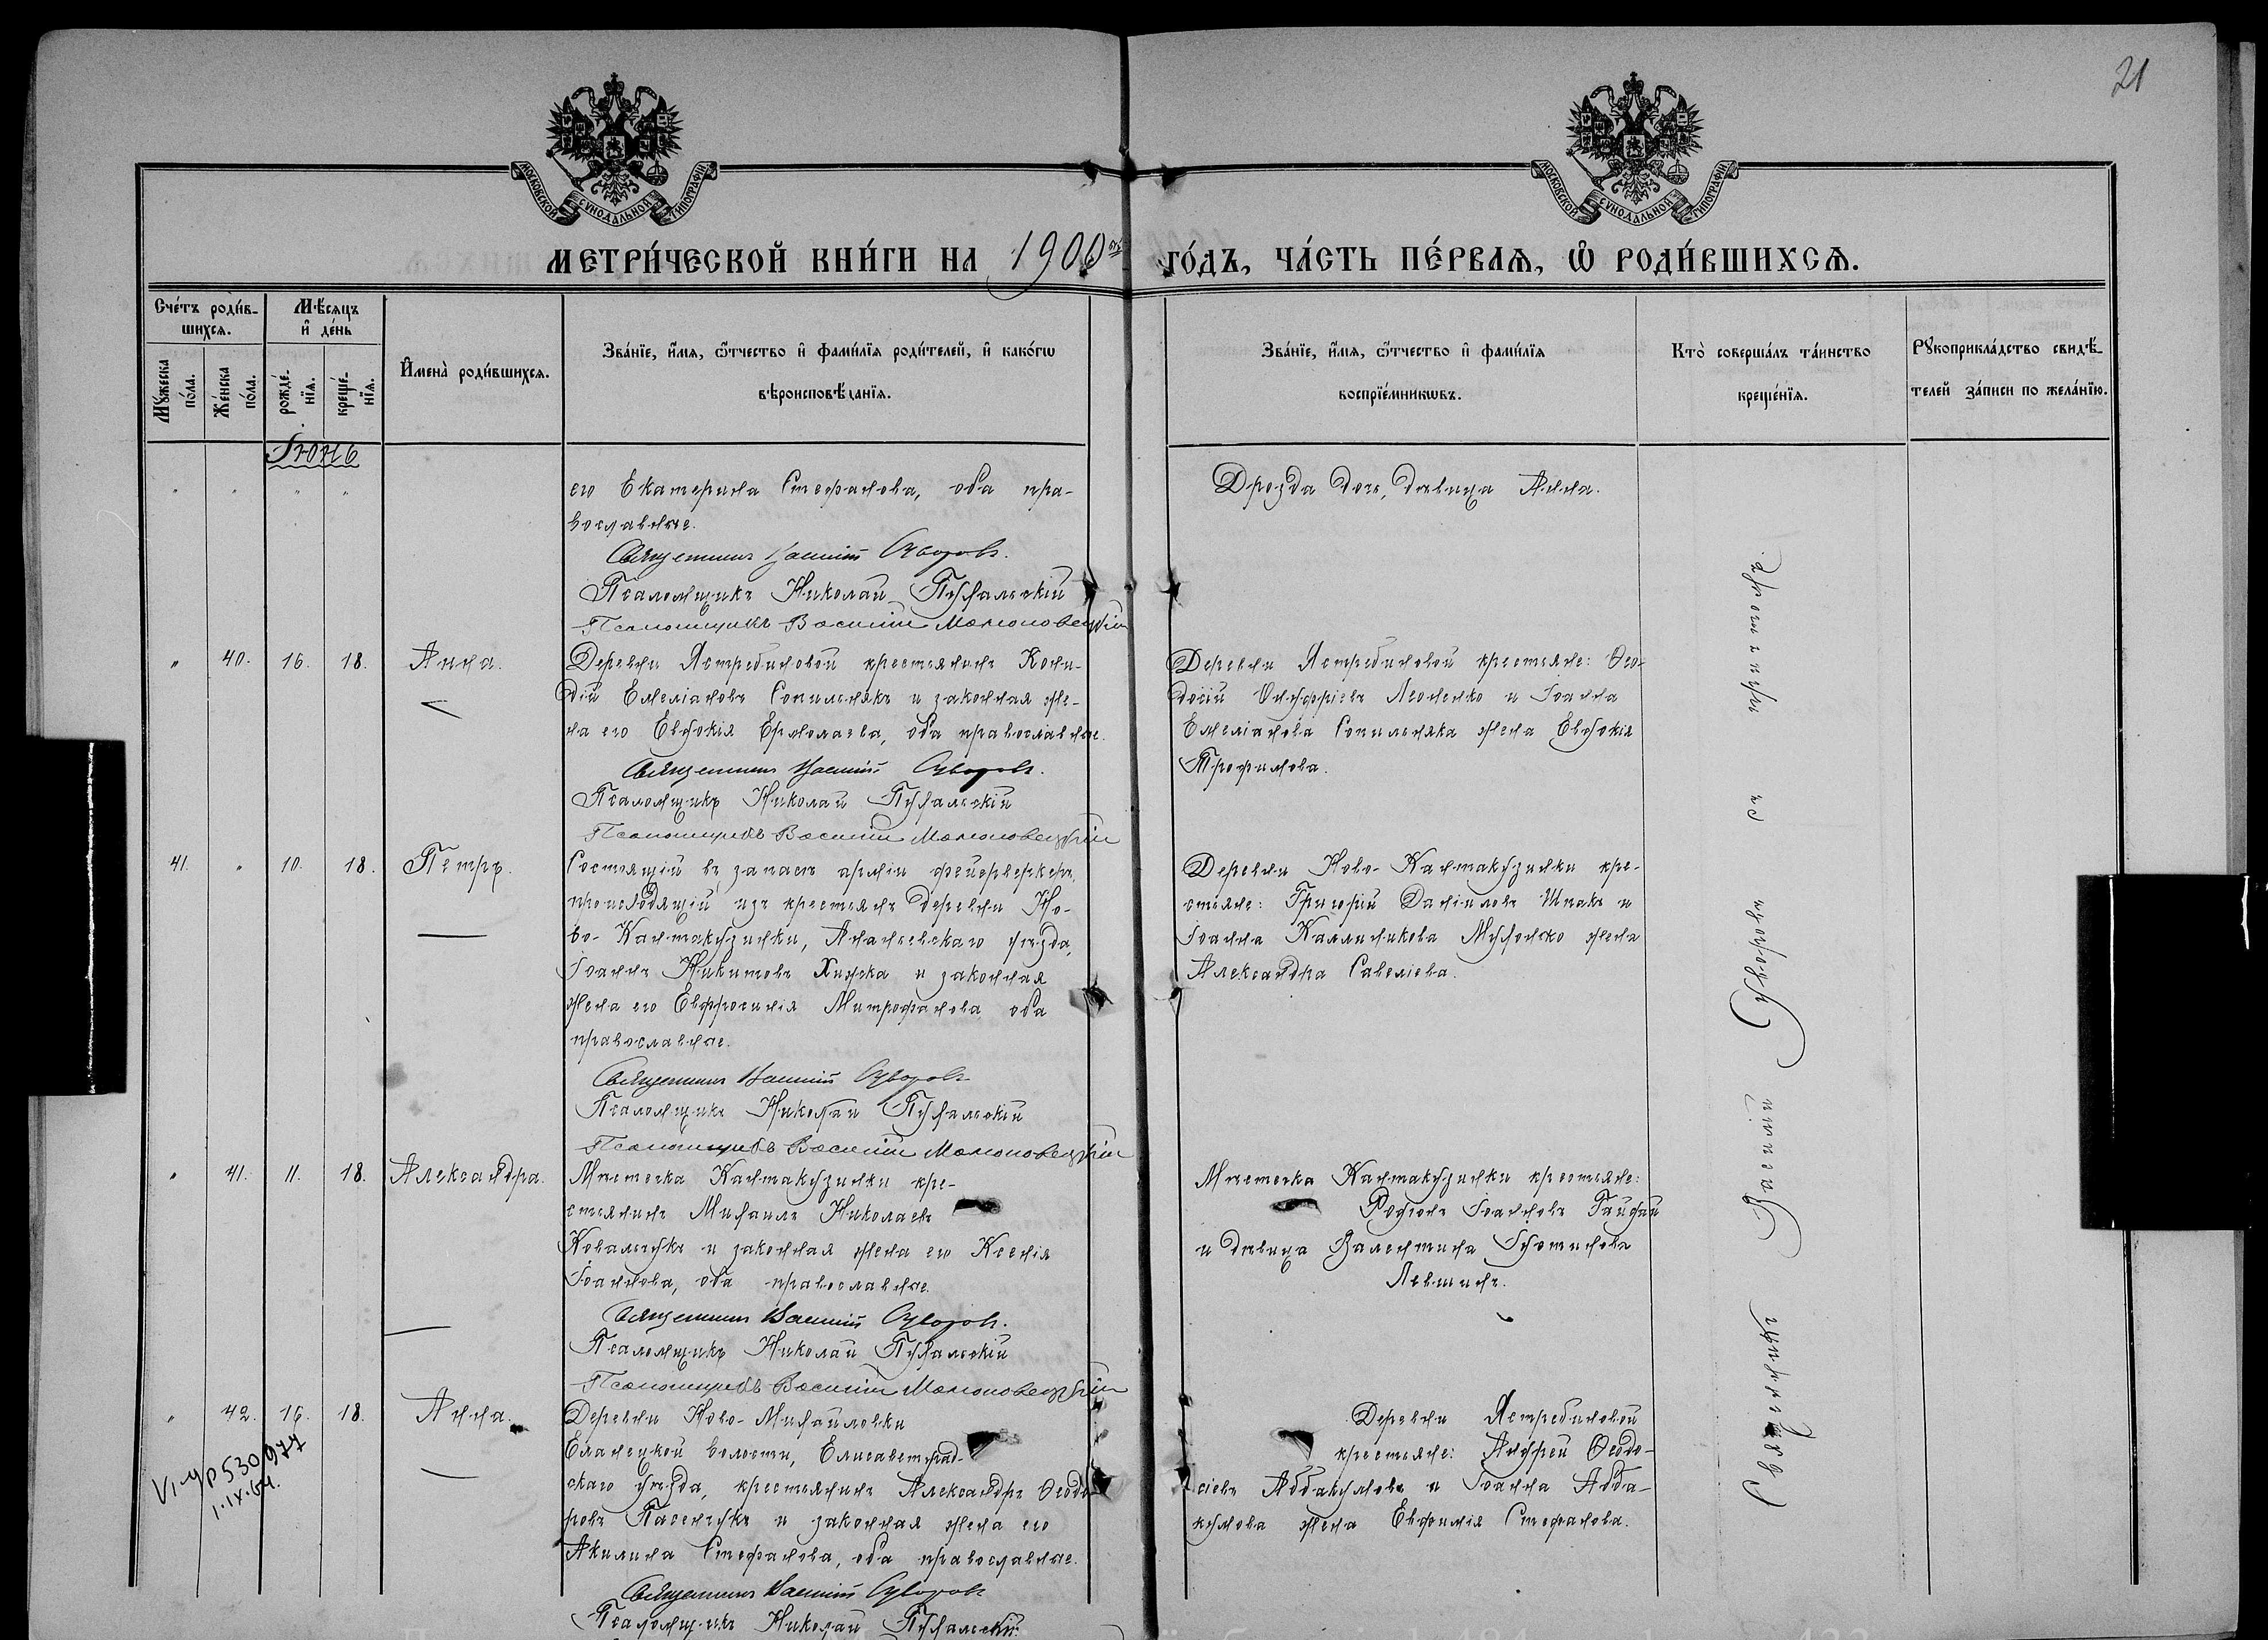 21
МОСКОВСКОЙ СѴНОДАЛЬНОЙ ТИПОГРАФІИ
МОСКОВСКОЙ СѴНОДАЛЬНОЙ ТИПОГРАФІИ
МЕТРИ́ЧЕСКОЙ КНИ́ГИ НА 1900ый ГО́ДЪ, ЧА́СТЬ ПЕ́РВАЯ, Ѡ҆ РОДИ́ВШИХСЯ.
Сче́тъ роди́в-
шихся.
Мѣ́сяцъ
и҆ де́нь
Мꙋ́жеска
по́ла.
Же́нска
по́ла.
рожде́-
нїя.
креще́-
нїя.
И҆мена̀ роди́вшихся.
Зва́нїе, и҆́мя, ѻ҆́тчество и҆ фами́лїя роди́телей, и҆ како́гѡ
вѣроисповѣ́данїя.
Зва́нїе, и҆́мя, ѻ҆́тчество и҆ фами́лїя
воспрїе́мникѡвъ.
Кто̀ соверша́лъ та́инство
креще́нїя.
Рꙋкоприкла́дство свидѣ́-
телей за́писи по жела́нїю.
Іюнь
" " " "
его Екатерина Стефанова, оба пра-
вославные.
Священникъ Василій Суворовъ.
Псаломщикъ Николай Пухальскій
Псаломщикъ Василій
Дрозда дочь, дѣвица Анна.
" 40. 16. 18. Анна.
Деревни Ястребиновой крестьянинъ Кони-
дій Емеліановъ Сопильнякъ и законная же-
на его Евдокія Ермолаева, оба православные.
Священникъ Василій Суворовъ.
Псаломщикъ Николай Пухальскій
Псаломщикъ Василій
Деревни Ястребиновой крестьяне: Ѳео-
досій Онуфріевъ Леоненко и Іоанна
Емеліанова Сопильняка жена Евдокія
Трофимова.
41. " 10. 18. Петръ.
Состоящій въ запасѣ арміи фейерверкеръ,
происходящій изъ крестьянъ деревни Но-
во-Кантакузинки, Ананьевскаго уѣзда,
Іоаннъ Никитовъ Хижка и законная
жена его Евфросинія Митрофанова оба
православные.
Священникъ Василій Суворовъ
Псаломщикъ Николай Пухальскій
Псаломщикъ Василій
Деревни Ново-Кантакузинки кре-
стьяне: Григорій Даніиловъ Шпакъ и
Іоанна Каллиникова жена
Александра Савеліева.
" 41. 11. 18. Александра.
Мѣстечка Кантакузинки кре-
стьянинъ Михаилъ Николаевъ
Ковальчукъ и законная жена его Ксенія
Іоаннова, оба православные.
Священникъ Василій Суворовъ.
Псаломщикъ Николай Пухальскій
Псаломщикъ Василій
Мѣстечка Кантакузинки крестьяне:
Родіонъ Іоанновъ Гайдай
и дѣвица Валентина Іустинова
Левшинъ.
" 42. 16. 18. Анна.
Деревни Ново-Михайловки
Еланецкой волости, Елисаветград-
скаго уѣзда, крестьянинъ Александръ Ѳеодо-
ровъ Пасечукъ и законная жена его
Акилина Стефанова, оба православные.
Священникъ Василій Суворовъ
Псаломщикъ Николай Пухальскій.
Деревни Ястребиновой
крестьяне: Андрей Ѳеодо-
сіевъ Аввакумовъ и Іоанна Авва-
кумова жена Евфимія Стефанова.
Священникъ Василій Суворовъ съ псаломщикомъ
VI-УР 530977
1.IX.64.